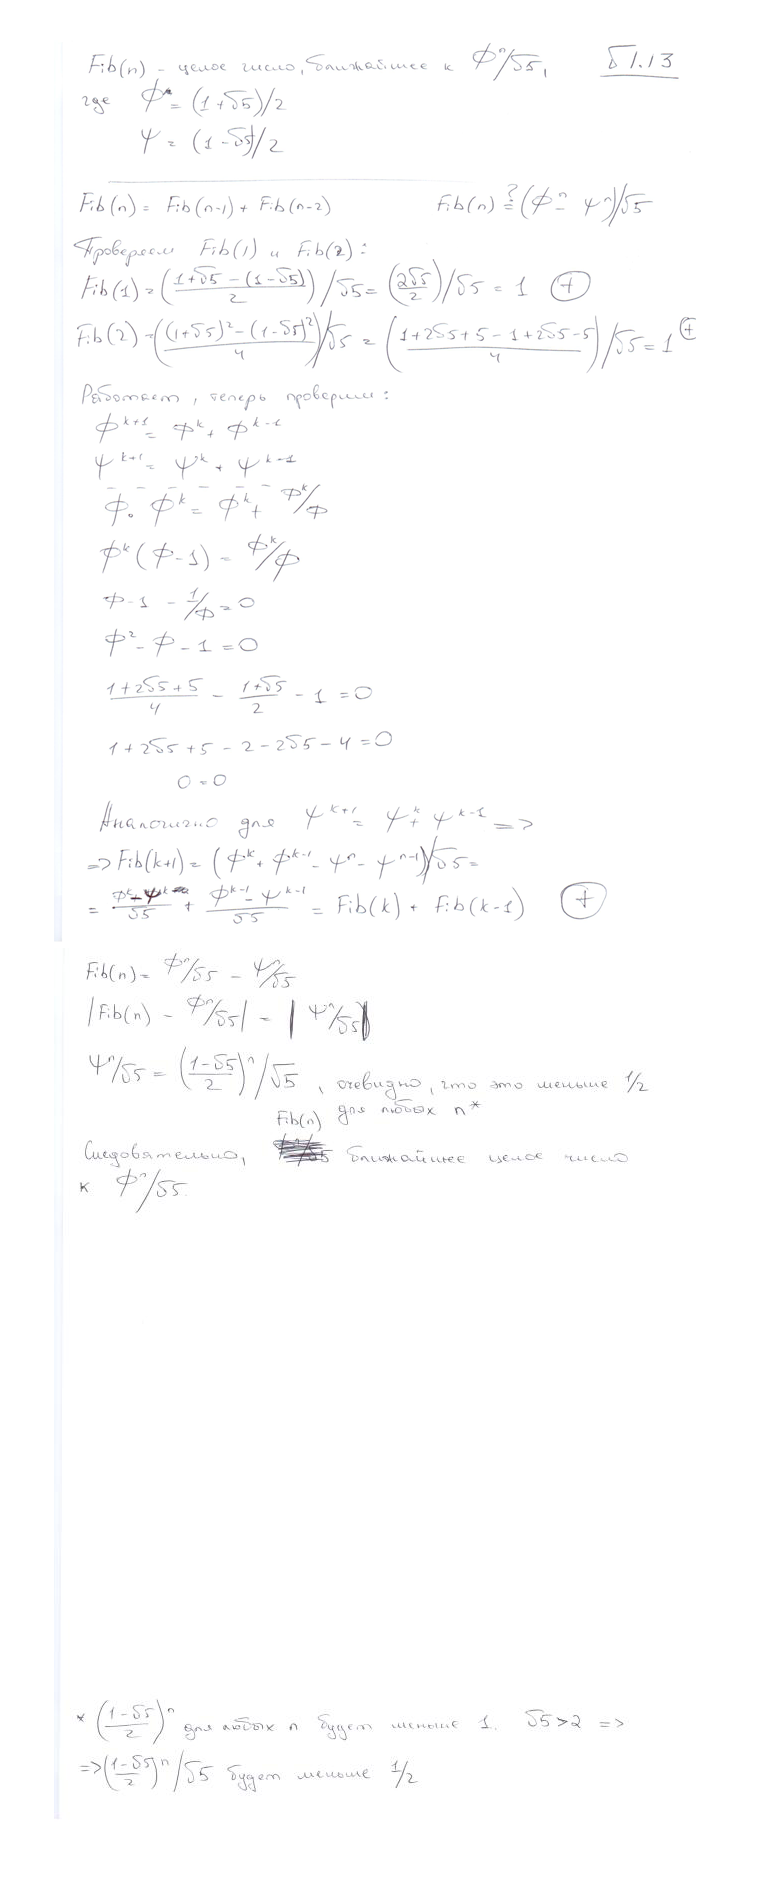 Fib(n) – целое число, ближайшее к Φⁿ/√5, §1.13
где Φ = (1+√5)/2
Ψ = (1-√5)/2
Fib(n) = Fib(n-1) + Fib(n-2) Fib(n) ≟ (Φⁿ - Ψⁿ)/√5
Проверяем Fib(1) и Fib(2):
Fib(1) = ((1+√5 - (1-√5))/2)/√5 = (2√5/2)/√5 = 1 ⊕
Fib(2) = (((1+√5)² - (1-√5)²)/4)/√5 = ((1+2√5+5-1+2√5-5)/4)/√5 = 1 ⊕
Работает, теперь проверим:
Φᵏ⁺¹ = Φᵏ + Φᵏ⁻¹
Ψᵏ⁺¹ = Ψᵏ + Ψᵏ⁻¹
Φ · Φᵏ = Φᵏ + Φᵏ/Φ
Φᵏ(Φ-1) = Φᵏ/Φ
Φ-1 - 1/Φ = 0
Φ² - Φ - 1 = 0
(1+2√5+5)/4 - (1+√5)/2 - 1 = 0
1+2√5+5-2-2√5-4=0
0=0
Аналогично для Ψᵏ⁺¹ = Ψᵏ + Ψᵏ⁻¹ =>
=> Fib(k+1) = (Φᵏ + Φᵏ⁻¹ - Ψⁿ - Ψⁿ⁻¹)/√5 =
= (Φᵏ - Ψᵏ)/√5 + (Φᵏ⁻¹ - Ψᵏ⁻¹)/√5 = Fib(k) + Fib(k-1) ⊕
Fib(n) = Φⁿ/√5 - Ψⁿ/√5
|Fib(n) - Φⁿ/√5| = |Ψⁿ/√5|
Ψⁿ/√5 = ((1-√5)/2)ⁿ/√5, очевидно, что это меньше 1/2
для любых n*
Следовательно, Fib(n) ближайшее целое число
к Φⁿ/√5.
* ((1-√5)/2)ⁿ для любых n будет меньше 1. √5>2 =>
=> ((1-√5)/2)ⁿ/√5 будет меньше 1/2